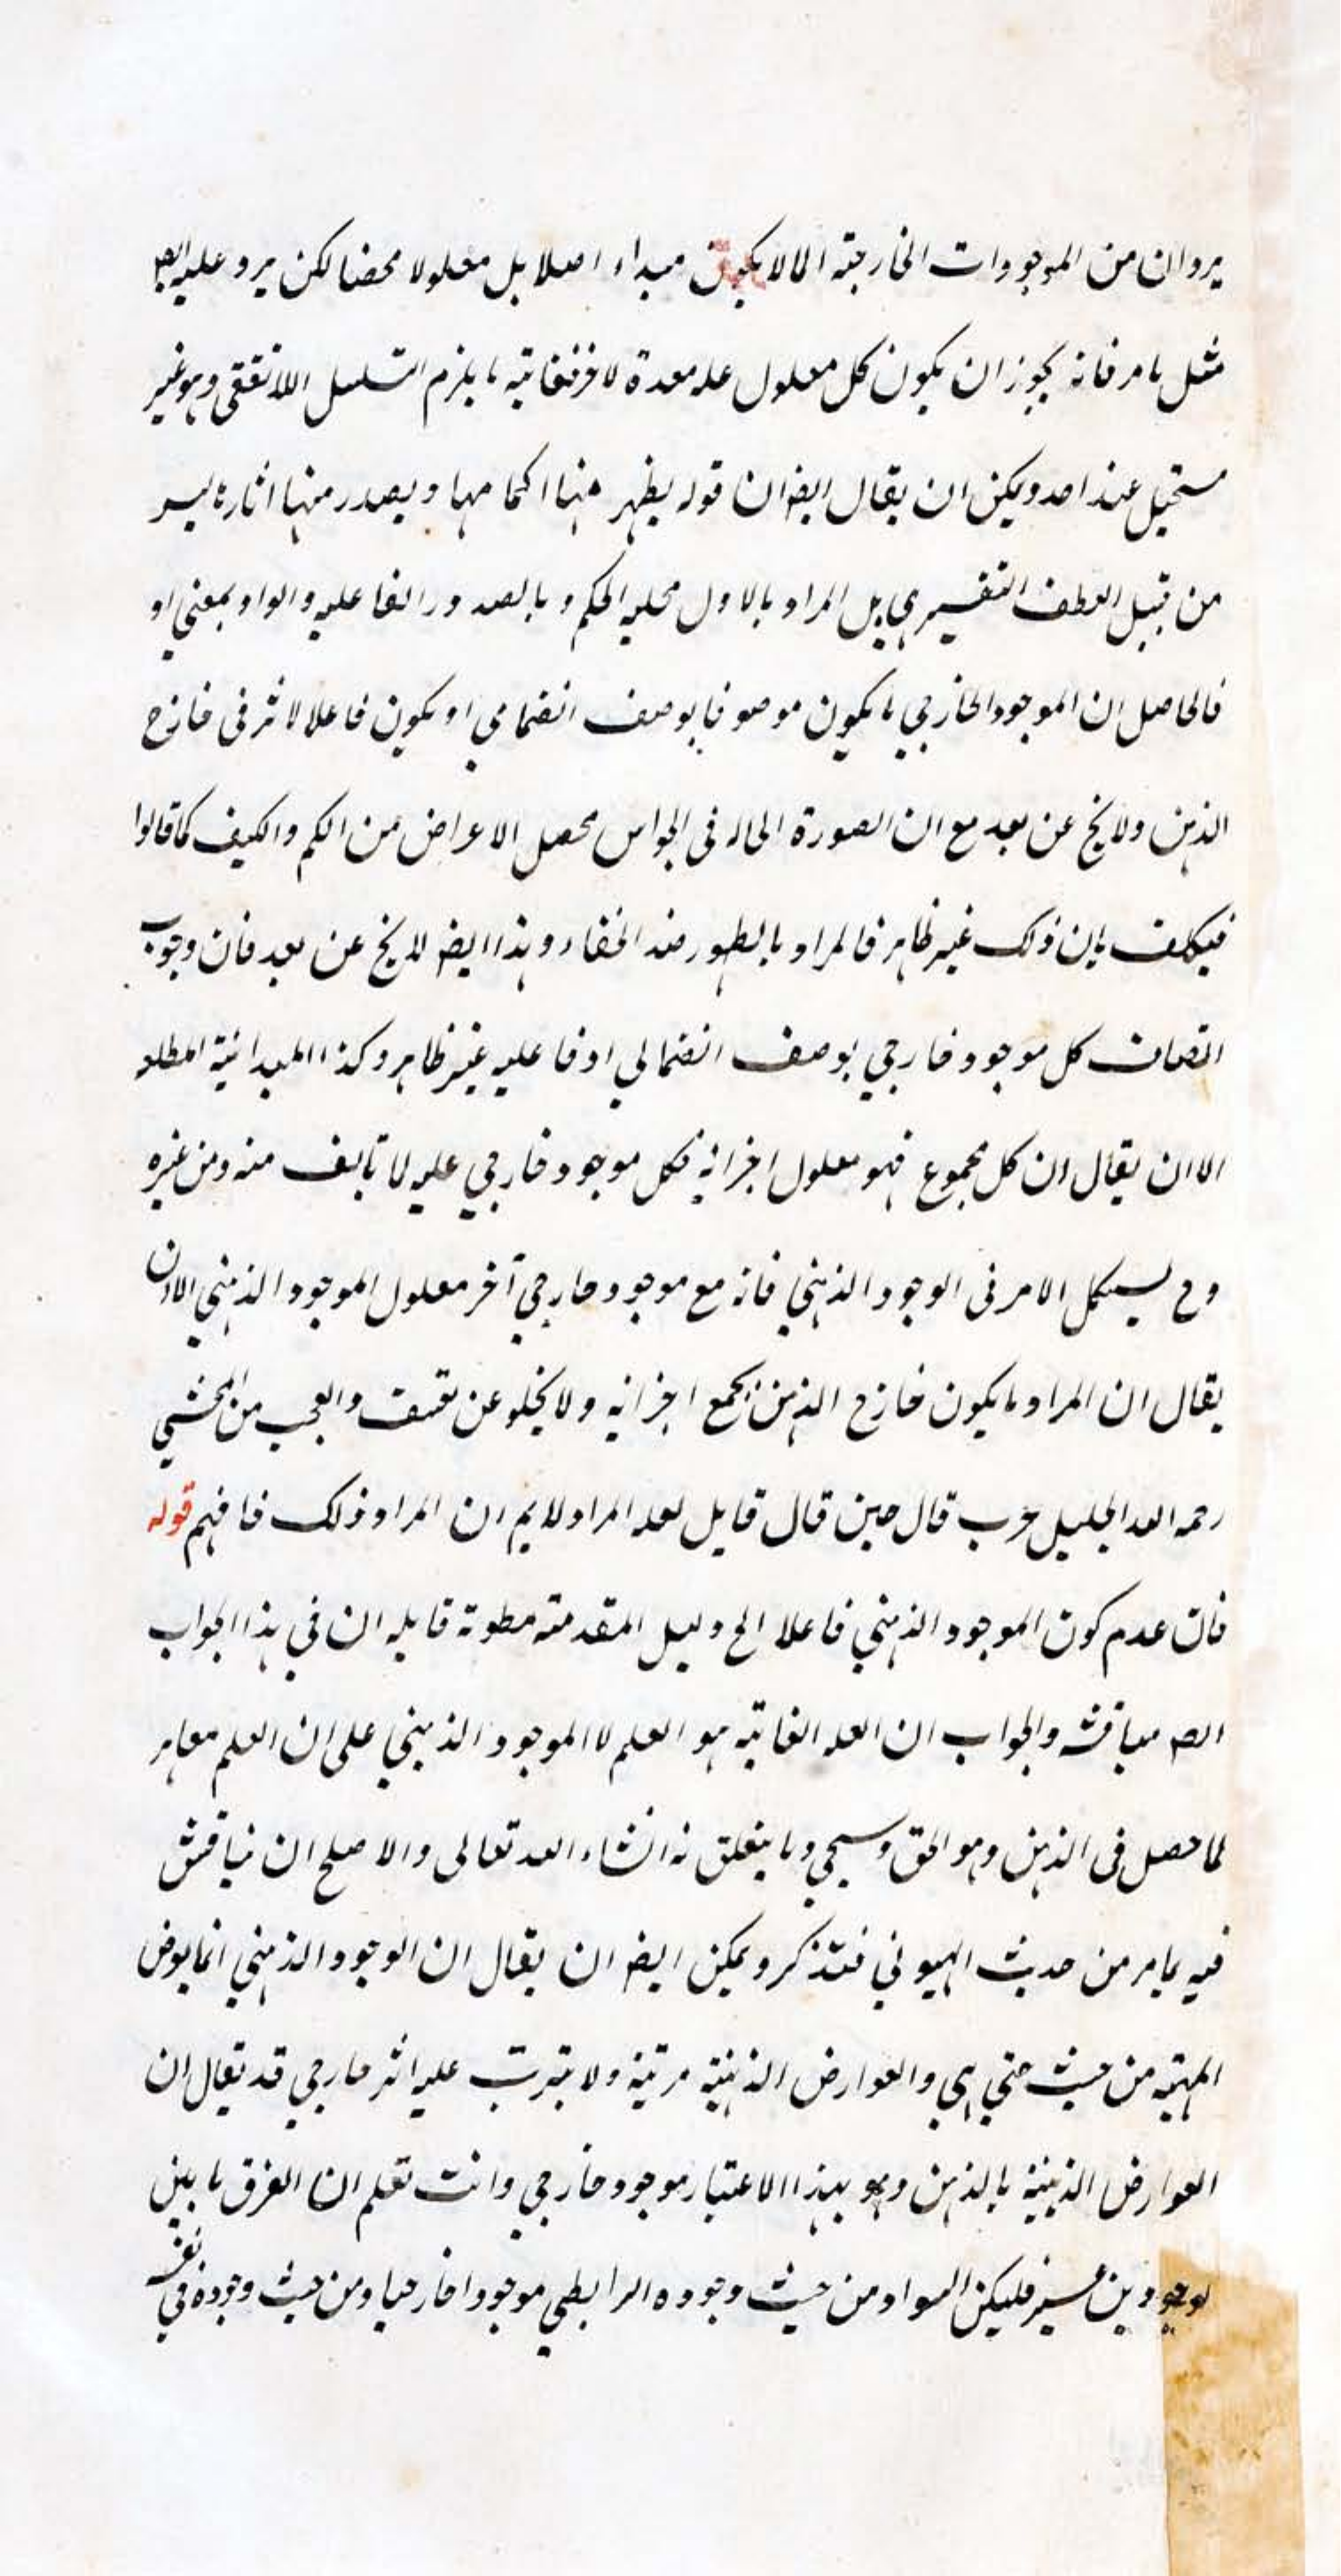 يرد ان من الموجودات الخارجية الا لا يكون مبداء اصلا بل معلولا محضا لكن يرد عليه ايضا
مثل ما مر فانه يجوز ان يكون لكل معلول عله معدة لاخر فغايته ما يلزم التسلسل اللاتقفي وهو غير
مستحيل عند احد ويمكن ان يقال ايضا ان قوله يظهر منها احكامها ويصدر منها اثارها ليس
من قبيل العطف التفسيري بل المراد بالاول محلية الحكم وبالصدور الفاعلية والواو بمعنى او
فالحاصل ان الموجود الخارجي ما يكون موصوفا بوصف انضمامي او يكون فاعلا لاثر في خارج
الذهن ولا يخ عن بعد مع ان الصورة الحاله في الحواس محصل الاعراض من الكم والكيف كما قالوا
فيكلف بان ذلك غير ظاهر فالمراد بالظهور ضد الخفاء وهذا ايضا لا يخ عن بعد فان وجوب
اتصاف كل موجود خارجي بوصف انضمامي او فاعليه غير ظاهر وكذا المبدائية المطلقة
الا ان يقال ان كل مجموع فهو معلول اجزائه فكل موجود خارجي عله لما تالف منه ومن غيره
وح يشكل الامر في الوجود الذهني فانه مع موجود خارجي آخر معلول الموجود الذهني الا ان
يقال ان المراد ما يكون خارج الذهن بجمع اجزائه ولا يخلو عن تعسف والعجب من المحشي
رحمه الله الجليل حيث قال حين قال قايل لعله المراد لا يم ان المراد ذلك فافهم قوله
فان عدم كون الموجود الذهني فاعلا الخ دليل المقدمة مطوية قايله ان في هذا الجواب
ايضا مناقشة والجواب ان العله الغائيه هو العلم لا الموجود الذهني على ان العلم مغاير
لما حصل في الذهن وهو الحق وسيجي وما يتعلق به انشاء الله تعالى والاصلح ان يناقش
فيه بما مر من حديث الهيولي فتذكر ويمكن ايضا ان يقال ان الوجود الذهني انما يعرض
المهية من حيث هي هي والعوارض الذهنية مرتبة ولا يترتب عليه اثر خارجي قد يقال ان
العوارض الذهنية بالذهن وهو بهذا الاعتبار موجود خارجي وانت تعلم ان الفرق ما بين
لوجودين عسير فليكن السواد من حيث وجوده الرابطي موجودا خارجيا ومن حيث وجوده في نفسه